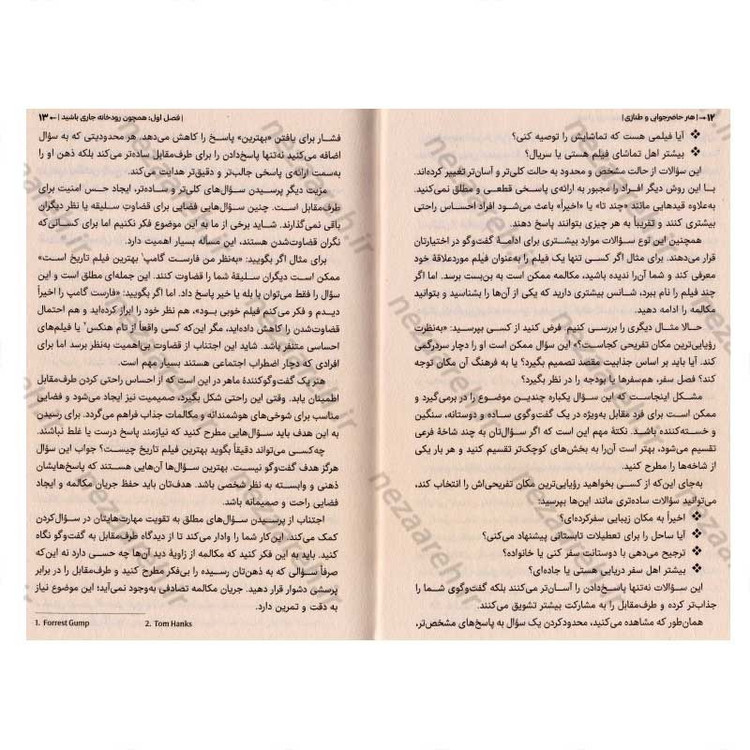 ۱۲ → | هنر حاضرجوابی و طنازی |
❖ آیا فیلمی هست که تماشایش را توصیه کنی؟
❖ بیشتر اهل تماشای فیلم هستی یا سریال؟
این سؤالات از حالت مشخص و محدود به حالت کلی‌تر و آسان‌تر تغییر کرده‌اند.
با این روش دیگر افراد را مجبور به ارائه‌ی پاسخی قطعی و مطلق نمی‌کنید.
به‌علاوه قیدهایی مانند «چند تا» یا «اخیراً» باعث می‌شود افراد احساس راحتی
بیشتری کنند و تقریباً به هر چیزی بتوانند پاسخ دهند.
همچنین این نوع سؤالات موارد بیشتری برای ادامهٔ گفت‌وگو در اختیارتان
قرار می‌دهند. برای مثال اگر کسی تنها یک فیلم را به‌عنوان فیلم موردعلاقهٔ خود
معرفی کند و شما آن‌را ندیده باشید، مکالمه ممکن است به بن‌بست برسد. اما اگر
چند فیلم را نام ببرد، شانس بیشتری دارید که یکی از آن‌ها را بشناسید و بتوانید
مکالمه را ادامه دهید.
حالا مثال دیگری را بررسی کنیم. فرض کنید از کسی بپرسید: «به‌نظرت
رؤیایی‌ترین مکان تفریحی کجاست؟» این سؤال ممکن است او را دچار سردرگمی
کند. آیا باید بر اساس جذابیت مقصد تصمیم بگیرد؟ یا به فرهنگ آن مکان توجه
کند؟ فصل سفر، هم‌سفرها یا بودجه را در نظر بگیرد؟
مشکل اینجاست که این سؤال یکباره چندین موضوع را در برمی‌گیرد و
ممکن است برای فرد مقابل به‌ویژه در یک گفت‌وگوی ساده و دوستانه، سنگین
و خسته‌کننده باشد. نکتهٔ مهم این است که اگر سؤال‌تان به چند شاخهٔ فرعی
تقسیم می‌شود، بهتر است آن‌را به بخش‌های کوچک‌تر تقسیم کنید و هر بار یکی
از شاخه‌ها را مطرح کنید.
به‌جای این‌که از کسی بخواهید رؤیایی‌ترین مکان تفریحی‌اش را انتخاب کند،
می‌توانید سؤالات ساده‌تری مانند این‌ها بپرسید:
❖ اخیراً به مکان زیبایی سفر کرده‌ای؟
❖ آیا ساحل را برای تعطیلات تابستانی پیشنهاد می‌کنی؟
❖ ترجیح می‌دهی با دوستانت سفر کنی یا خانواده؟
❖ بیشتر اهل سفر دریایی هستی یا جاده‌ای؟
این سؤالات نه‌تنها پاسخ‌دادن را آسان‌تر می‌کنند بلکه گفت‌وگوی شما را
جذاب‌تر کرده و طرف‌مقابل را به مشارکت بیشتر تشویق می‌کنند.
همان‌طور که مشاهده می‌کنید، محدودکردن یک سؤال به پاسخ‌های مشخص‌تر،
| فصل اول: همچون رودخانه جاری باشید | ← ۱۳
فشار برای یافتن «بهترین» پاسخ را کاهش می‌دهد. هر محدودیتی که به سؤال
اضافه می‌کنید نه‌تنها پاسخ‌دادن را برای طرف‌مقابل ساده‌تر می‌کند بلکه ذهن او را
به‌سمت ارائه‌ی پاسخی جالب‌تر و دقیق‌تر هدایت می‌کند.
مزیت دیگر پرسیدن سؤال‌های کلی‌تر و ساده‌تر، ایجاد حس امنیت برای
طرف‌مقابل است. چنین سؤال‌هایی فضایی برای قضاوت سلیقه یا نظر دیگران
باقی نمی‌گذارند. شاید برخی از ما به این موضوع فکر نکنیم اما برای کسانی‌که
نگران قضاوت‌شدن هستند، این مسأله بسیار اهمیت دارد.
برای مثال اگر بگویید: «به‌نظر من فارست گامپ¹ بهترین فیلم تاریخ است»
ممکن است دیگران سلیقهٔ شما را قضاوت کنند. این جمله‌ای مطلق است و این
سؤال را فقط می‌توان با بله یا خیر پاسخ داد. اما اگر بگویید: «فارست گامپ را اخیراً
دیدم و فکر می‌کنم فیلم خوبی بود»، هم نظر خود را ابراز کرده‌اید و هم احتمال
قضاوت‌شدن را کاهش داده‌اید، مگر این‌که کسی واقعاً از تام هنکس² یا فیلم‌های
احساسی متنفر باشد. شاید این اجتناب از قضاوت بی‌اهمیت به‌نظر برسد اما برای
افرادی که دچار اضطراب اجتماعی هستند بسیار مهم است.
هنر یک گفت‌وگوکنندهٔ ماهر در این است که از احساس راحتی کردن طرف‌مقابل
اطمینان یابد. وقتی این راحتی شکل بگیرد، صمیمیت نیز ایجاد می‌شود و فضایی
مناسب برای شوخی‌های هوشمندانه و مکالمات جذاب فراهم می‌گردد. برای رسیدن
به این هدف باید سؤال‌هایی مطرح کنید که نیازمند پاسخ درست یا غلط نباشند.
چه‌کسی می‌تواند دقیقاً بگوید بهترین فیلم تاریخ چیست؟ جواب این سؤال
هرگز هدف گفت‌وگو نیست. بهترین سؤال‌ها آن‌هایی هستند که پاسخ‌هایشان
ذهنی و وابسته به نظر شخصی باشد. هدف‌تان باید حفظ جریان مکالمه و ایجاد
فضایی راحت و صمیمانه باشد.
اجتناب از پرسیدن سؤال‌های مطلق به تقویت مهارت‌هایتان در سؤال‌کردن
کمک می‌کند. این‌کار شما را وادار می‌کند تا از دیدگاه طرف مقابل به گفت‌وگو نگاه
کنید. باید به این فکر کنید که مکالمه از زاویهٔ دید آن‌ها چه حسی دارد نه این‌که
صرفاً سؤالی که به ذهن‌تان رسیده را بی‌فکر مطرح کنید و طرف‌مقابل را در برابر
پرسشی دشوار قرار دهید. جریان مکالمه تصادفی به‌وجود نمی‌آید؛ این موضوع نیاز
به دقت و تمرین دارد.
1. Forrest Gump 2. Tom Hanks
nezaareh.ir